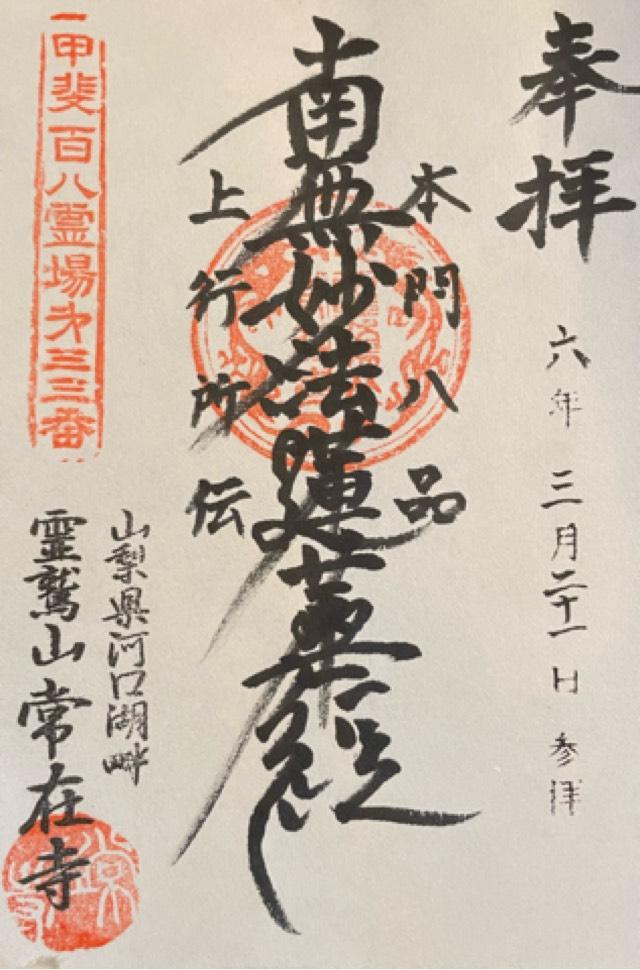 奉拝
六年 三月二十一日 参拝
本門八品
南無妙法蓮華経
上行所伝
甲斐百八霊場第三三番
山梨県河口湖畔
霊鷲山常在寺